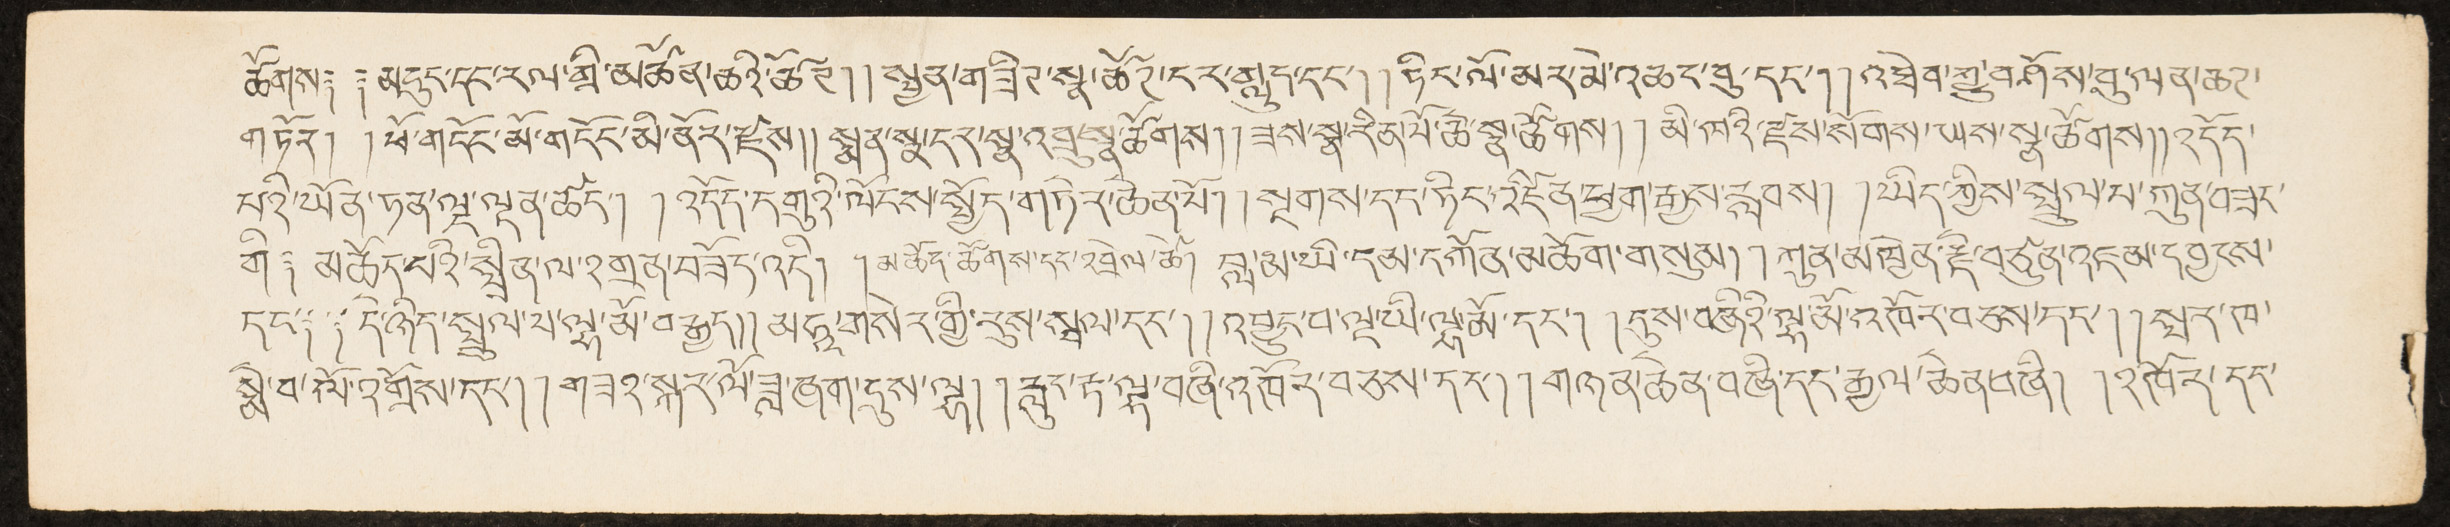 ཚོགས༔ ༔ མདུང་དང་རལ་གྲི་མཚོན་ཆའི་ཚོར། ། སྤྱན་གཟིར་སྣ་ཚོར་དར་གླུད་དང་། ། ཏིང་ལོ་མར་མེ་འཆང་བུ་དང་། ། འབྲེབ་ཀྱུ་བཤོས་བུ་ལན་ཆར་
གཏོར། ། ཕོ་གདོང་མོ་གདོང་མི་ནོར་རྫས།། སྨན་སྣ་དར་སྣ་འབྲུ་སྣ་ཚོགས། ། ཟས་སྣ་རིན་པོ་ཆེ་སྣ་ཚོགས། ། མི་ཁའི་རྫས་སོགས་ཡས་སྣ་ཚོགས།། འདོད་
པའི་ཡོན་ཏན་ལྔ་ལྡན་ཚོད། ། འདོད་དགུའི་ལོངས་སྤྱོད་གཏེར་ཆེན་པོ། ། སྔགས་དང་ཏིང་འཛིན་ཕྱག་རྒྱས་རླབས། ། ཡིད་ཀྱིས་སྤྲུལ་པ་ཀུན་བཟང་
གི༔ མཆོད་པའི་སྤྲིན་ལ་འགྲན་བཟོད་འདི། ། མཆོད་ཚོགས་དང་འབྲེལ་ཚེ། བླ་མ་ཡི་དམ་དཀོན་མཆོག་གསུམ། ། ཀུན་མཁྱེན་རྗེ་བཙུན་འཇམ་དབྱངས་
དང་༔ ༔ དེ་ཉིད་སྤྲུལ་པ་ལྷ་མོ་བརྒྱད།། མཧཱ་གསེར་གྱི་རུས་སྦལ་དང་། ། འབྱུང་བ་ལྔ་ཡི་ལྷ་མོ་དང་། ། དུས་བཞིའི་ལྷ་མོ་འཁོར་བཅས་དང་། ། སྤར་ཁ་
སྨེ་བ་ལོ་འགྲོས་དང་། ། གཟའ་སྐར་ལོ་ཟླ་ཞག་དུས་ལྷ། ། རླུང་རྟ་ལྷ་བཞི་འཁོར་བཅས་དང་། ། གཉན་ཆེན་བཞི་དང་རྒྱལ་ཆེན་བཞི། ། འཁོར་དང་